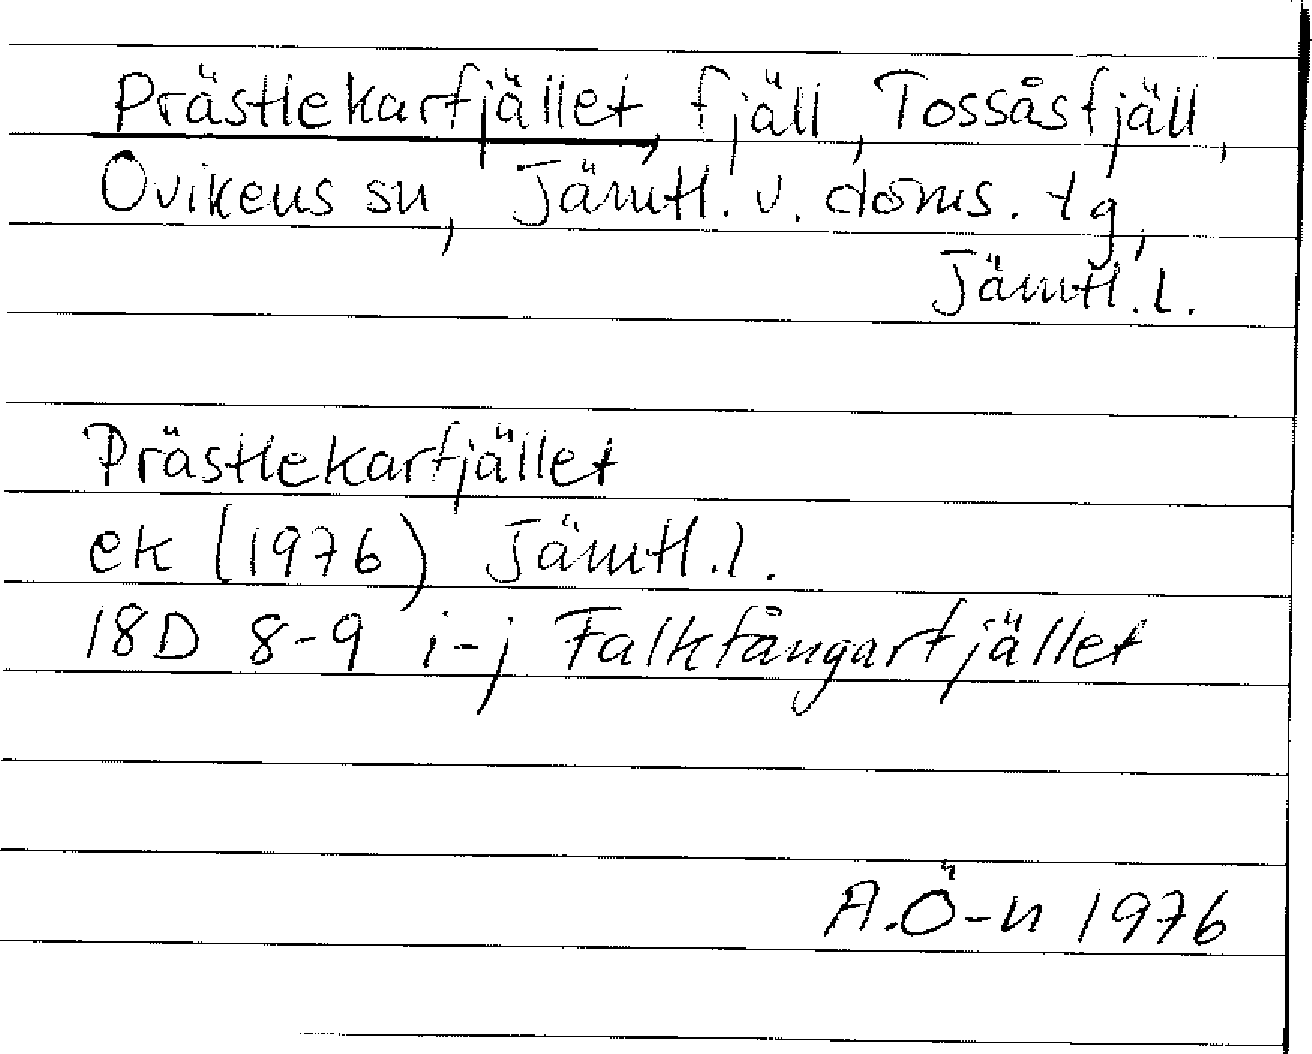 Prästlekarfjället, fjäll, Tossåsfjäll,
Ovikens sn, Jämtl. v. doms. tg,
Jämtl. l.
Prästlekarfjället
ek (1976) Jämtl. l.
18D 8-9 i-j Falkfångarfjället
A.Ö-n 1976